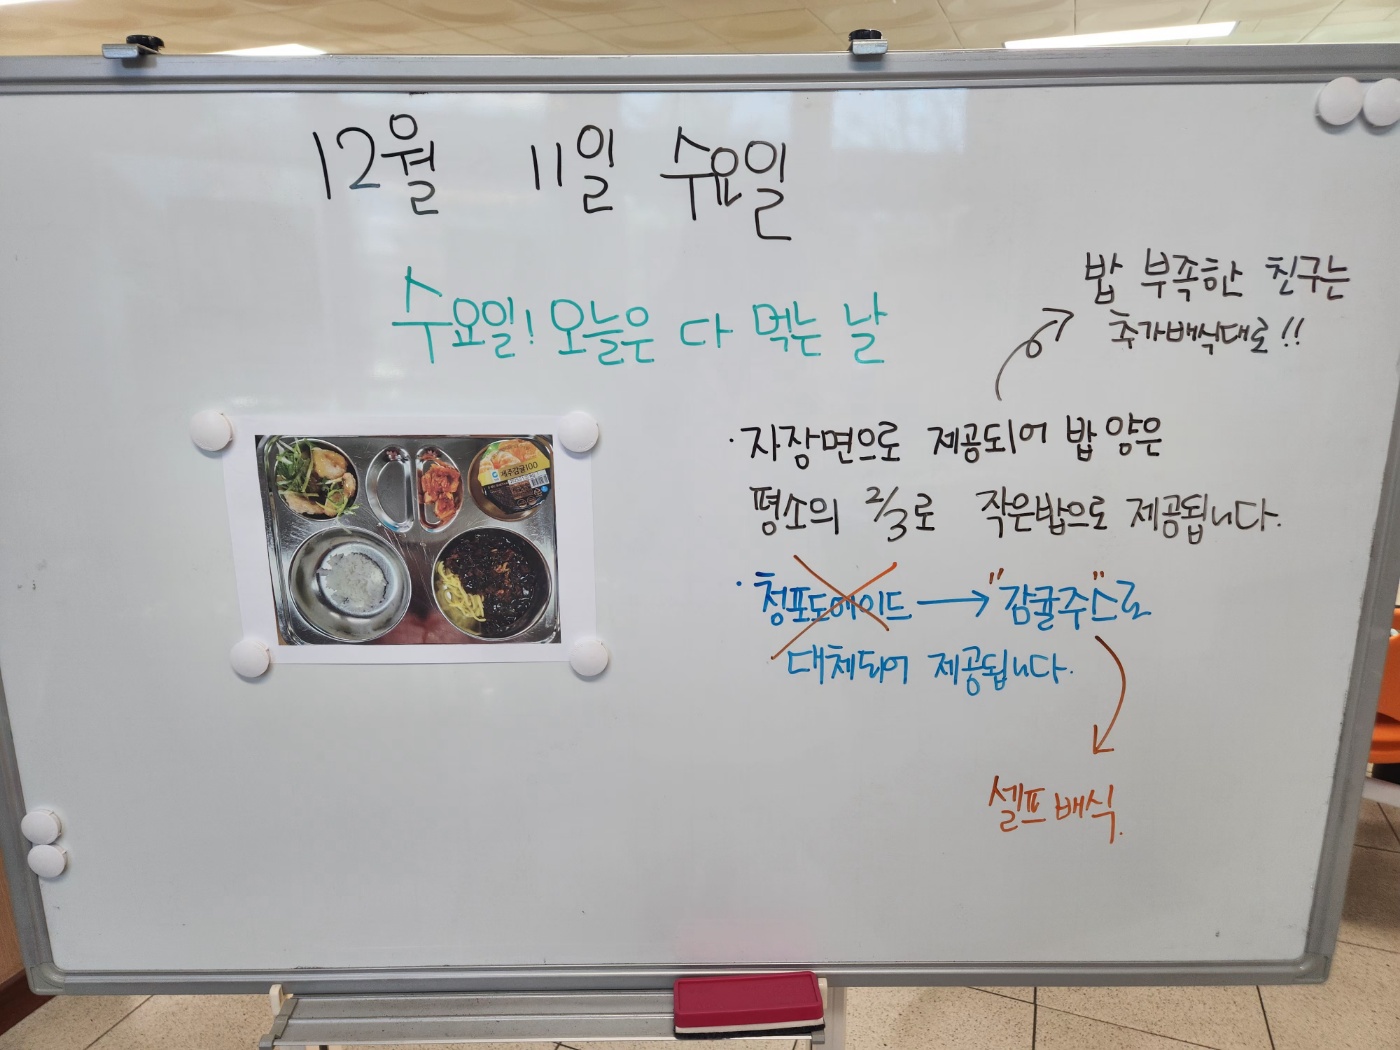 12월 11일 수요일
수요일! 오늘은 다 먹는 날
밥 부족한 친구는
추가배식대로!!
· 자장면으로 제공되어 밥 양은
평소의 2/3로 작은밥으로 제공됩니다.
· 청포도에이드 → "감귤주스"로
대체되어 제공됩니다.
셀프 배식.
제주감귤100